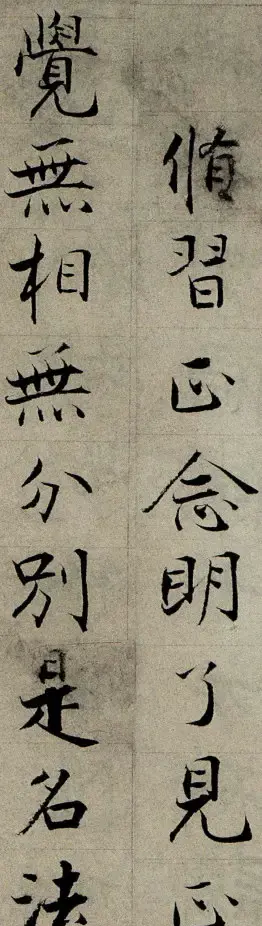 脩習正念明了見正
覺無相無分別是名法